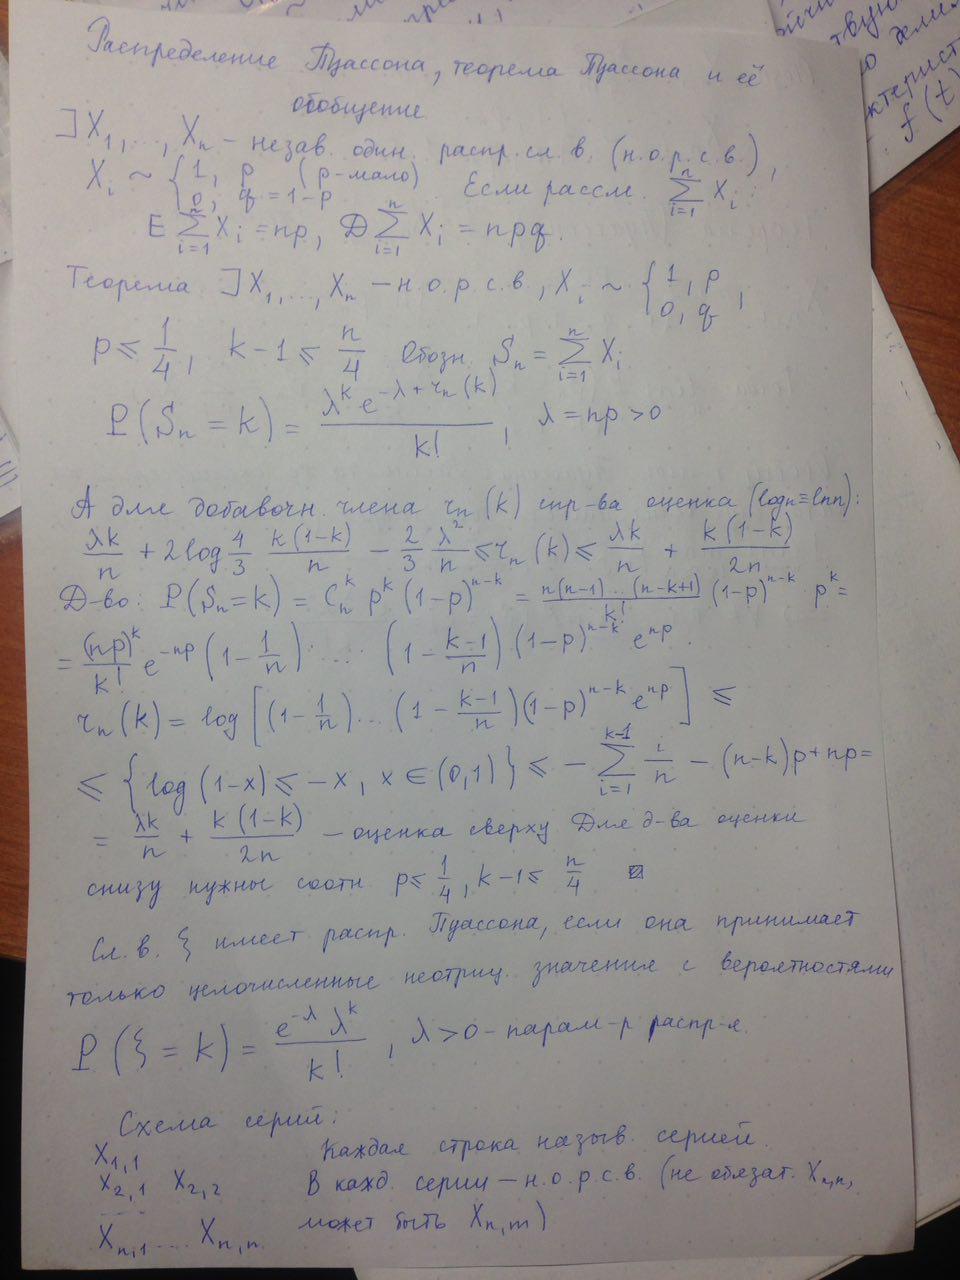 Распределение Пуассона, теорема Пуассона и её
обобщение
∃ X₁, ..., Xₙ - незав. один. распр. сл. в. (н.о.р.с.в.),
Xᵢ ~ { 1, p (p-мало) 0, q = 1-p Если рассм. ∑ᵢ₌₁ⁿ Xᵢ :
E ∑ᵢ₌₁ⁿ Xᵢ = np, D ∑ᵢ₌₁ⁿ Xᵢ = npq.
Теорема ∃ X₁, ..., Xₙ - н.о.р.с.в., Xᵢ ~ { 1, p 0, q ,
p ≤ 1/4, k-1 ≤ n/4 Обозн. Sₙ = ∑ᵢ₌₁ⁿ Xᵢ
P(Sₙ = k) = λᵏ e^(-λ + rₙ(k)) / k! , λ = np > 0
А для добавочн. члена rₙ(k) спр-ва оценка (log n ≡ ln n):
λk/n + 2log 4/3 k(1-k)/n - 2/3 λ²/n ≤ rₙ(k) ≤ λk/n + k(1-k)/2n
Д-во: P(Sₙ=k) = Cₙᵏ pᵏ (1-p)ⁿ⁻ᵏ = n(n-1)...(n-k+1)/k! (1-p)ⁿ⁻ᵏ pᵏ =
= (np)ᵏ/k! e^(-np) (1 - 1/n) ..... (1 - (k-1)/n) (1-p)ⁿ⁻ᵏ e^(np).
rₙ(k) = log [(1 - 1/n) ... (1 - (k-1)/n) (1-p)ⁿ⁻ᵏ e^(np)] ≤
≤ { log(1-x) ≤ -x, x ∈ (0,1) } ≤ - ∑ᵢ₌₁ᵏ⁻¹ i/n - (n-k)p + np =
= λk/n + k(1-k)/2n - оценка сверху Для д-ва оценки
снизу нужны соотн p ≤ 1/4, k-1 ≤ n/4
Сл. в. ξ имеет распр. Пуассона, если она принимает
только целочисленные неотриц. значения с вероятностями
P(ξ = k) = e^(-λ) λᵏ / k! , λ > 0 - парам-р распр-я.
Схема серий:
X₁,₁ Каждая строка назыв. серией.
X₂,₁ X₂,₂ В кажд. серии - н.о.р.с.в. (не обязат. Xₙ,ₙ,
Xₙ,₁ .... Xₙ,ₙ может быть Xₙ,ₘ)
f(t)